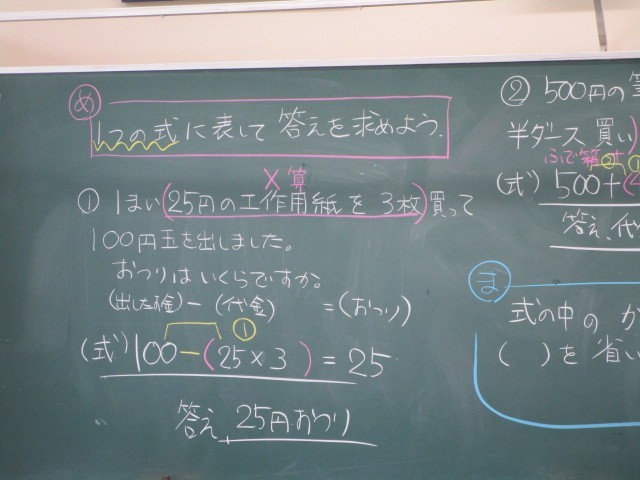 め
1つの式に表して答えを求めよう。
×算
① 1まい(25円の工作用紙を3枚)買って
100円玉を出しました。
おつりはいくらですか。
(出したお金)−(代金) =(おつり)
①
(式) 100−(25×3)=25
答え 25円おつり
② 500円の筆
半ダース 買い)
ふで箱
② ①
(式) 500+(
答え、代
ま
式の中の か
( )を 省い